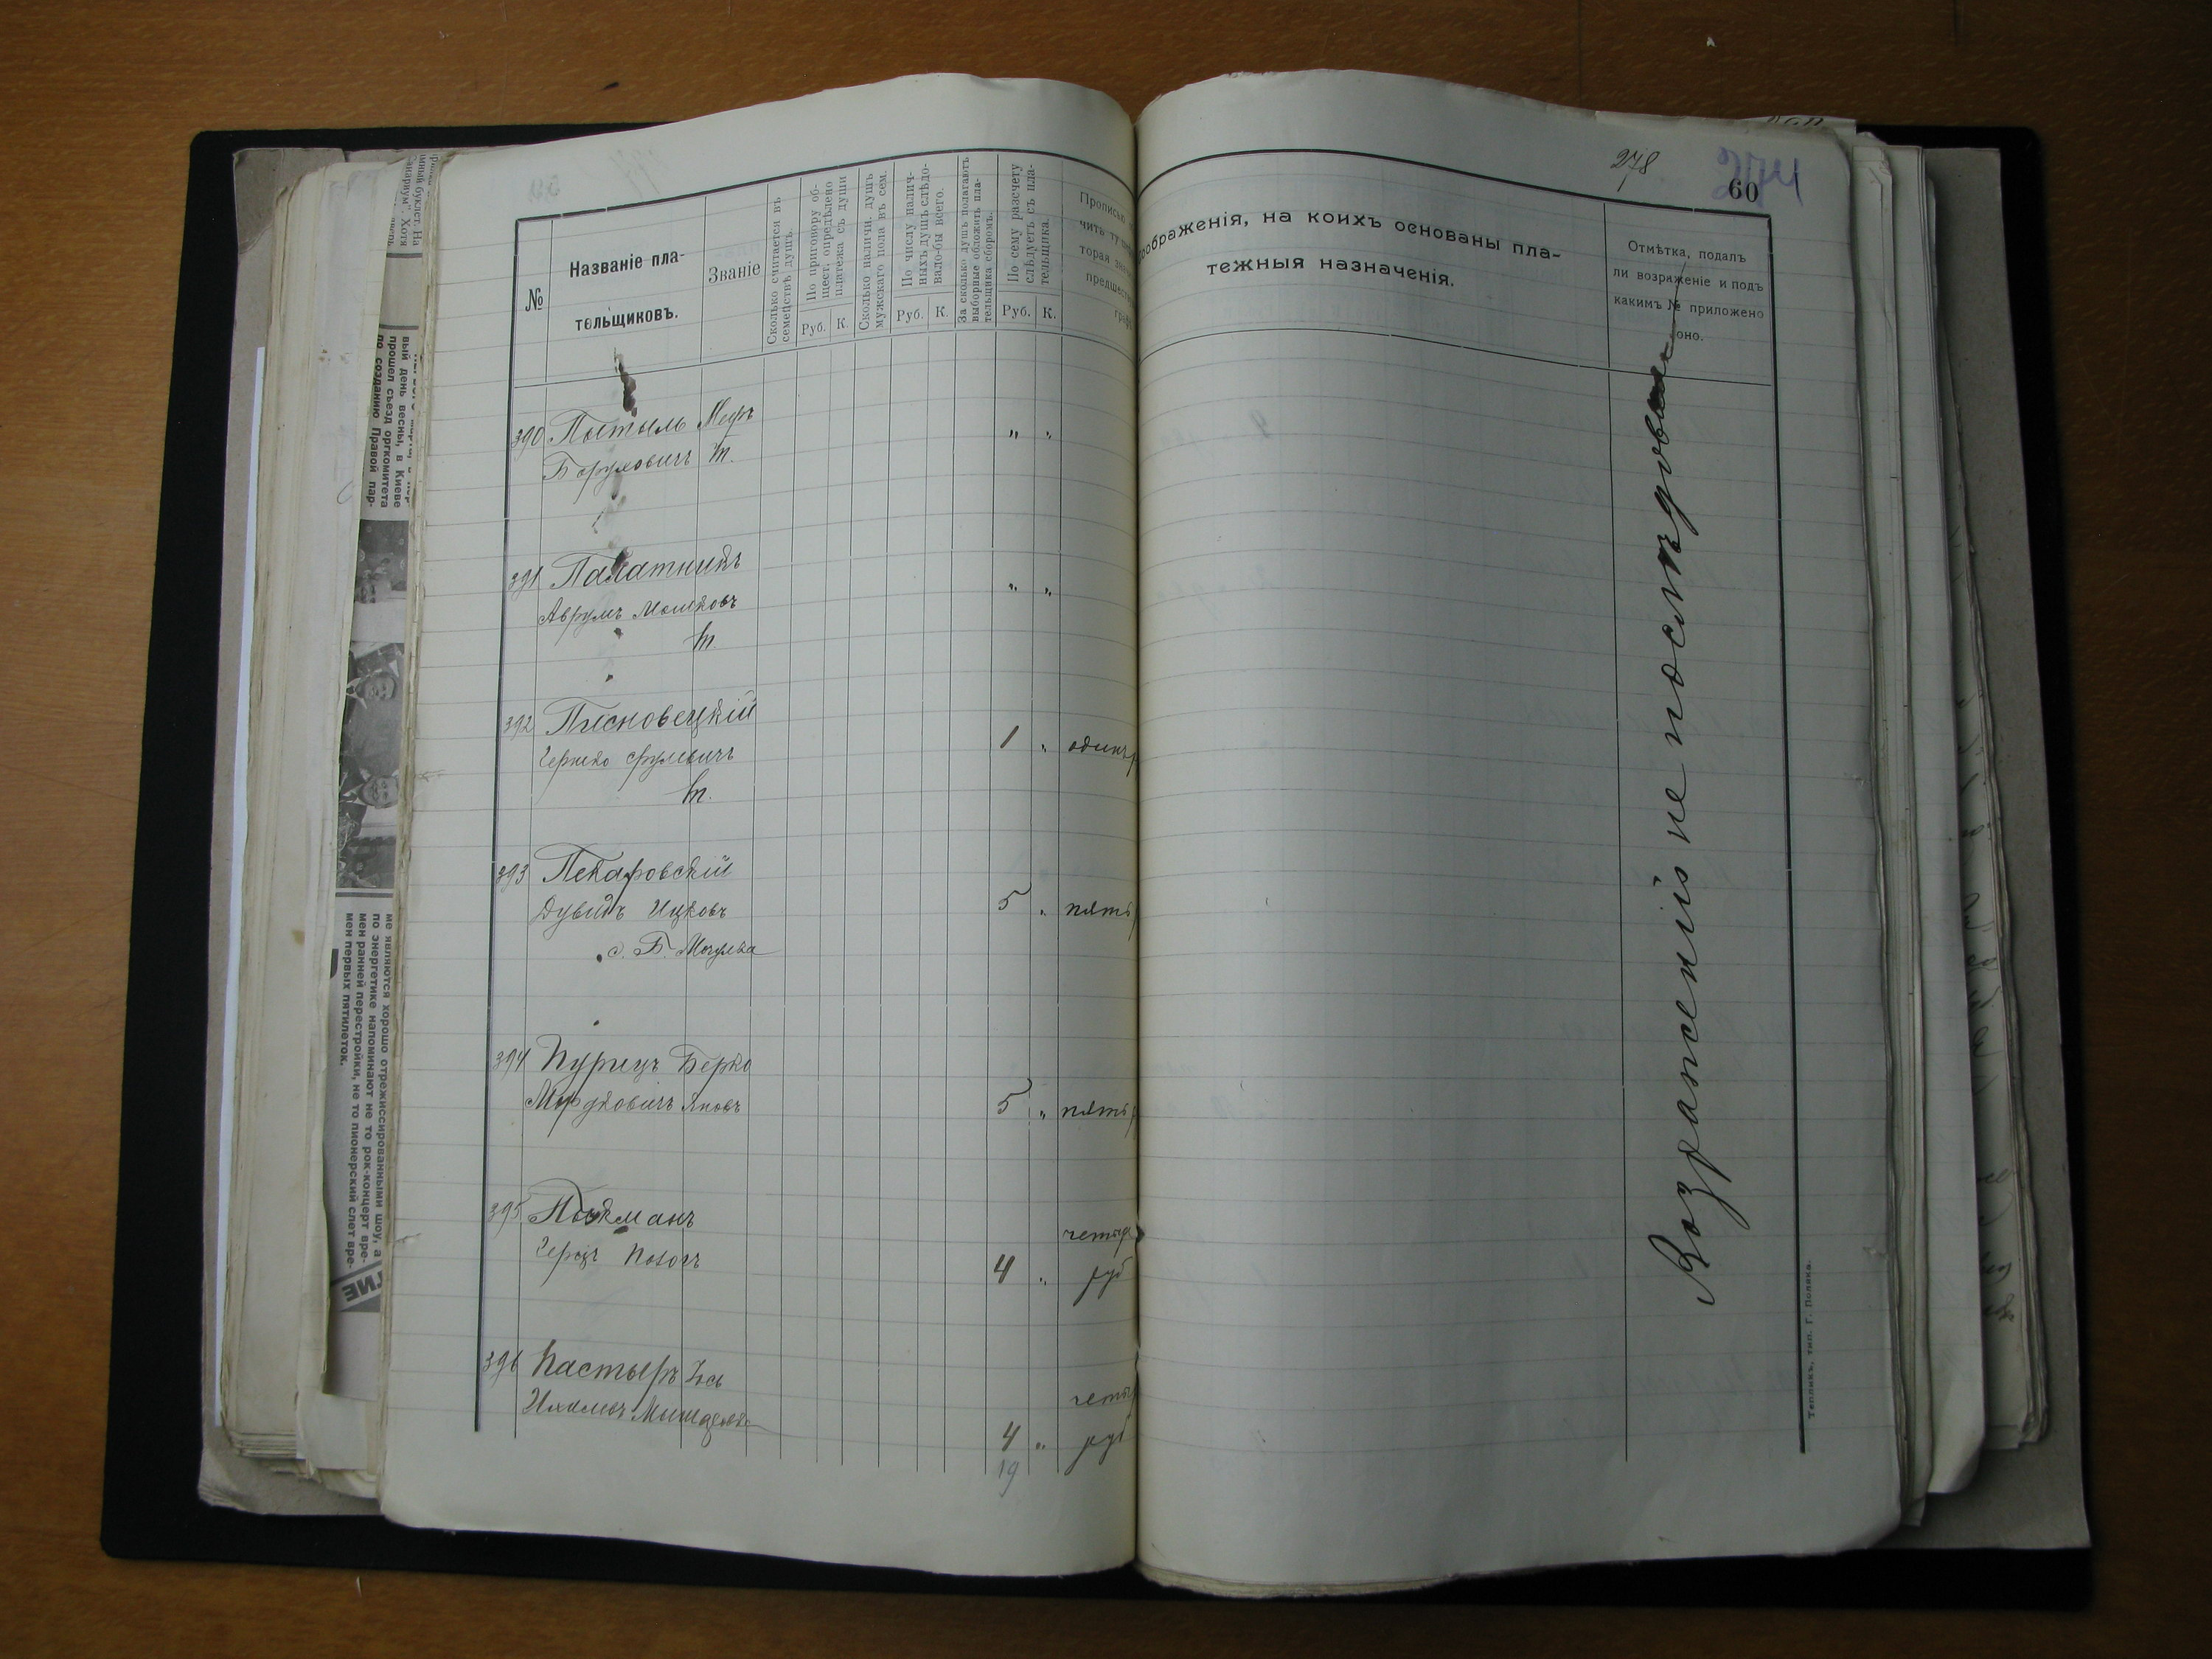 278
60
№
Названіе пла-
тельщиковъ.
Званіе
Сколько считается въ
семействѣ душъ.
По приговору об-
щест. опредѣлено
платежа съ души
Руб. К.
Сколько наличн. душъ
мужскаго пола въ сем.
По числу налич-
ныхъ душъ слѣдо-
вало-бы всего.
Руб. К.
За сколько душъ полагаютъ
выборные обложить пла-
тельщика сборомъ.
По сему разсчету
слѣдуетъ съ пла-
тельщика.
Руб. К.
Прописью
чить ту
торая
предшест
граф
ображенія, на коихъ основаны пла-
тежныя назначенія.
Отмѣтка, подалъ
ли возраженіе и подъ
какимъ № приложено
оно.
390 Постыль Меер
Боруховичъ т. " "
391 Палатникъ
Аврумъ Мошковъ " "
т.
392 Писновецкій
Гершко Срулевичъ 1 " одинъ р
т.
393 Пекаровскій
Дувидъ Ицковъ 5 " пять р
с. Б. Мочулка
394 Пурицъ Берко
Мордковичъ Яновъ 5 " пять р
395
Герцъ 4 " четыр
руб
396 Пастыръ Іось
4 " четыр
руб
19
Возраженій не послѣдовало
Тепликъ, тип. Г. Поляка.
вый день весны, в Киеве
прошел съезд оргкомитета
по созданию Правой пар-
ме являются хорошо отрежиссированными шоу, а
по энергетике напоминают не то рок-концерт вре-
мен ранней перестройки, не то пионерский слет вре-
мен первых пятилеток.